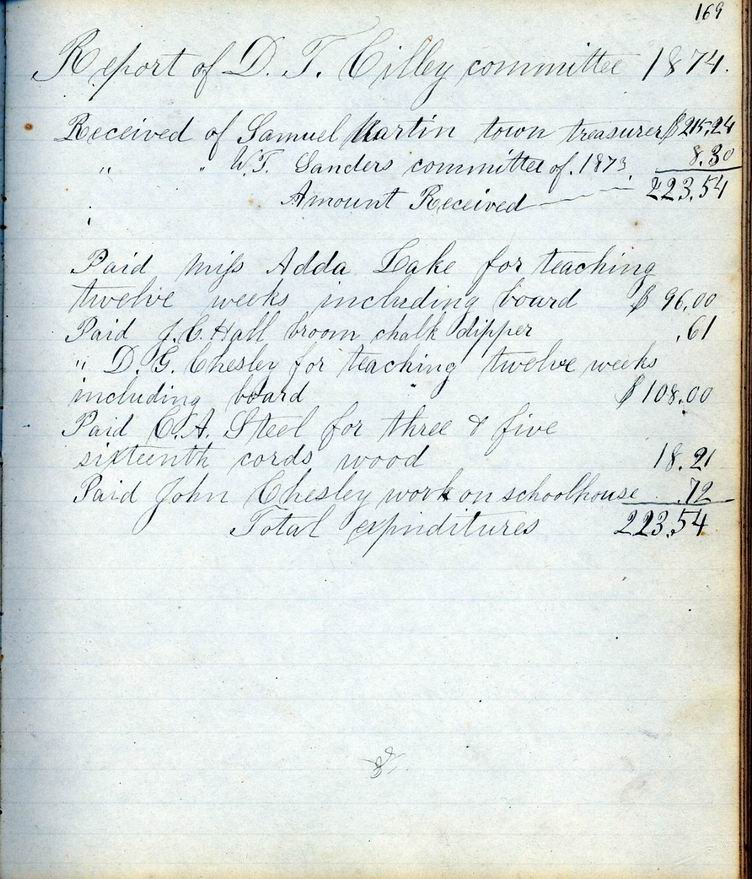 169
Report of D. T. Cilley committee 1874.
Received of Samuel Martin town treasurer $215.24
" " W.T. Sanders committee of 1873 8.30
Amount Received 223.54
Paid Miss Adda Lake for teaching
twelve weeks including board $96.00
Paid J.C. Hall broom chalk dipper .61
" D. G. Chesley for teaching twelve weeks
including board $108.00
Paid C.A. Steel for three & five
sixteenth cords wood 18.21
Paid John Chesley work on schoolhouse .72
Total expnditures 223.54